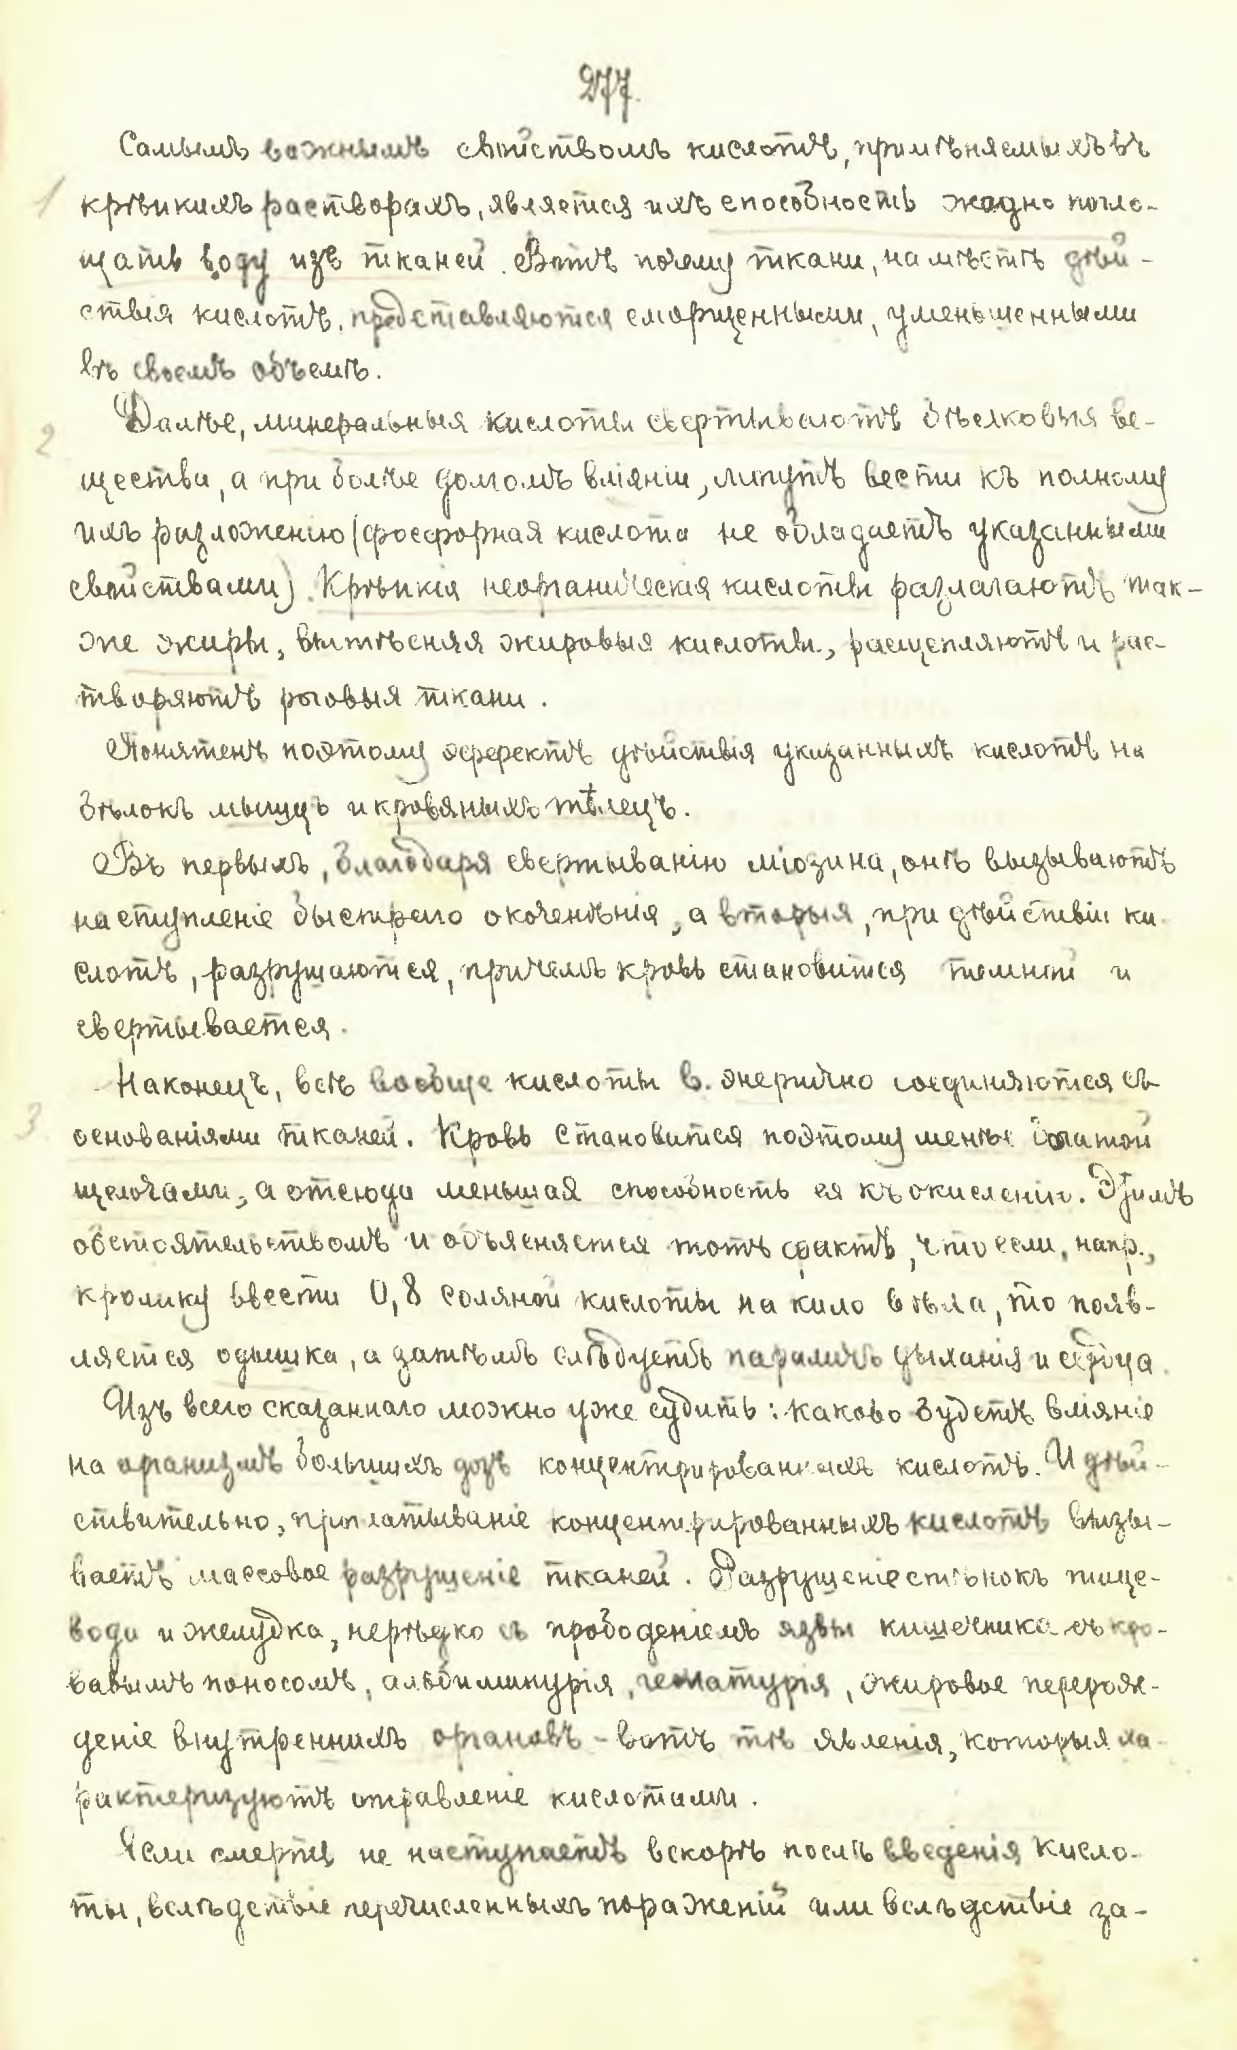 277.
Самымъ важнымъ свойствомъ кислотъ, примѣняемыхъ въ
1 крѣпкихъ растворахъ, является ихъ способность жадно погло-
щать воду изъ тканей. Вотъ почему ткани, на мѣстѣ дѣй-
ствія кислотъ, представляются сморщенными, уменьшенными
въ своемъ объемѣ.
2 Далѣе, минеральныя кислоты свертываютъ бѣлковыя ве-
щества, а при болѣе долгомъ вліяніи, могутъ вести къ полному
ихъ разложенію (фосфорная кислота не обладаетъ указанными
свойствами). Крѣпкія неорганическія кислоты разлагаютъ так-
же жиры, вытѣсняя жировыя кислоты, расщепляютъ и рас-
творяютъ роговыя ткани.
Понятенъ поэтому эффектъ дѣйствія указанныхъ кислотъ на
бѣлокъ мышцъ и кровяныхъ тѣлецъ.
Въ первыхъ, благодаря свертыванію міозина, онѣ вызываютъ
наступленіе быстраго окоченѣнія, а вторыя, при дѣйствіи ки-
слотъ, разрушаются, причемъ кровь становится темной и
свертывается.
Наконецъ, всѣ вообще кислоты в. энергично соединяются съ
3. основаніями тканей. Кровь становится поэтому менѣе богатой
щелочами, а отсюда меньшая способность ея къ окисленію. Этимъ
обстоятельствомъ и объясняется тотъ фактъ, что если, напр.,
кролику ввести 0,8 соляной кислоты на кило вѣса, то появ-
ляется одышка, а затѣмъ слѣдуетъ параличъ дыханія и сердца.
Изъ всего сказаннаго можно уже судить: каково будетъ вліяніе
на организмъ большихъ дозъ концентрированныхъ кислотъ. И дѣй-
ствительно, проглатываніе концентрированныхъ кислотъ вызы-
ваетъ массовое разрушеніе тканей. Разрушеніе стѣнокъ пище-
вода и желудка, нерѣдко съ прободеніемъ язвы кишечника съ кро-
вавымъ поносомъ, альбиминурія, гематурія, жировое перерож-
деніе внутреннихъ органовъ – вотъ тѣ явленія, которыя ха-
рактеризуютъ отравленіе кислотами.
Если смерть не наступаетъ вскорѣ послѣ введенія кисло-
ты, вслѣдствіе перечисленныхъ пораженій или вслѣдствіе за-